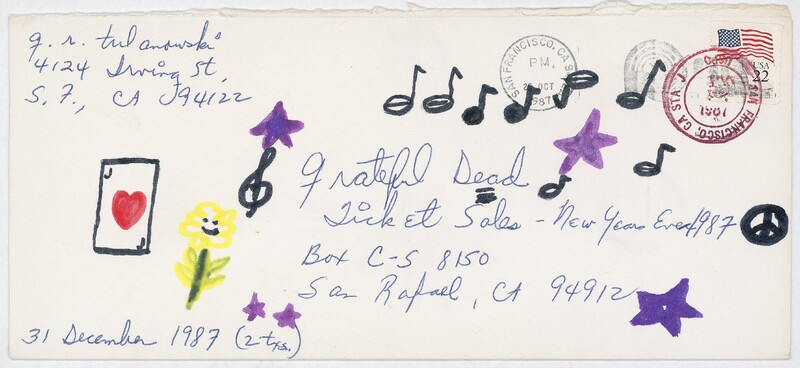 g. r. tulanowski
4124 Irving St,
S. F., CA 94122
SAN FRANCISCO, CA
PM
OCT
1987
USA
22
SAN FRANCISCO, CA STA J
1987
J
J
Grateful Dead
Ticket Sales - New Years Eve 1987
Box C-S 8150
San Rafael, CA 94912
31 December 1987 (2-txs.)